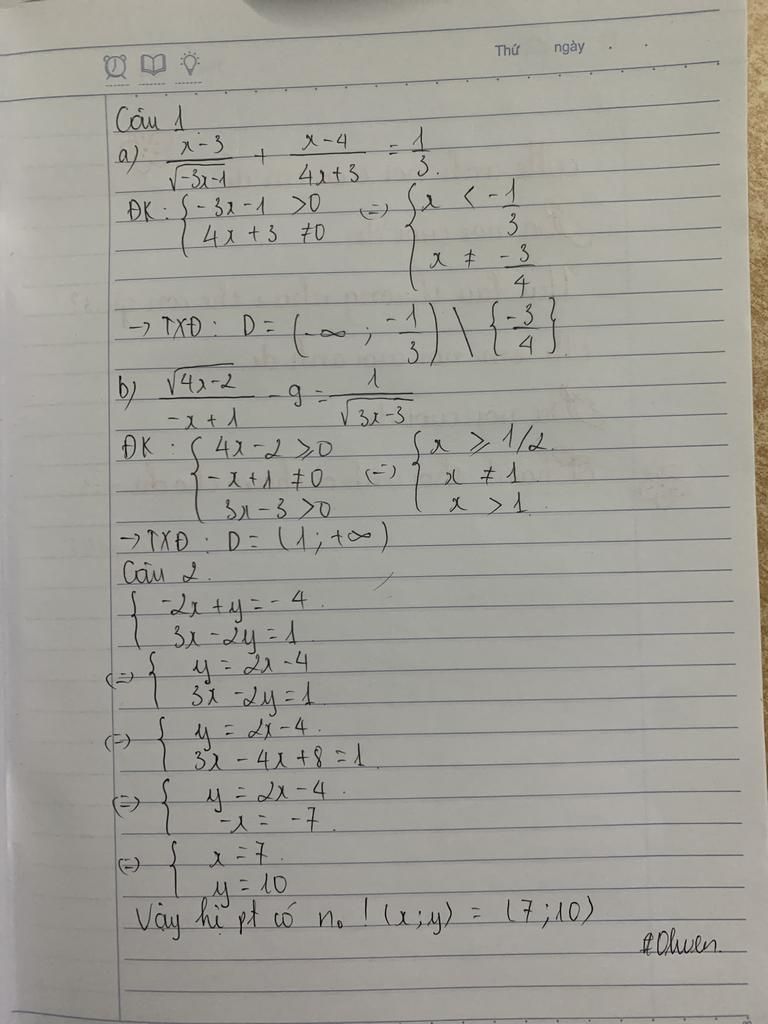 Thứ ngày . .
Câu 1
a) \frac{x-3}{\sqrt{-3x-1}} + \frac{x-4}{4x+3} = \frac{1}{3}.
ĐK: { -3x-1 >0 (=) { x < -\frac{1}{3}
4x+3 ≠0 x ≠ \frac{-3}{4}
→ TXĐ: D = (-∞ ; \frac{-1}{3}) \ {\frac{-3}{4}}.
b) \frac{\sqrt{4x-2}}{-x+1} - 9 = \frac{1}{\sqrt{3x-3}}
ĐK: { 4x-2 ≥0 (=) { x ≥ 1/2.
-x+1 ≠0 x ≠ 1
3x-3 >0 x >1.
→ TXĐ: D = (1; +∞)
Câu 2.
{ -2x+y=-4.
3x-2y=1
(=) { y = 2x-4
3x-2y=1
(=) { y = 2x-4.
3x-4x+8=1
(=) { y = 2x-4.
-x = -7.
(=) { x = 7.
y = 10
Vậy hệ pt có n₀ ! (x;y) = (7;10)